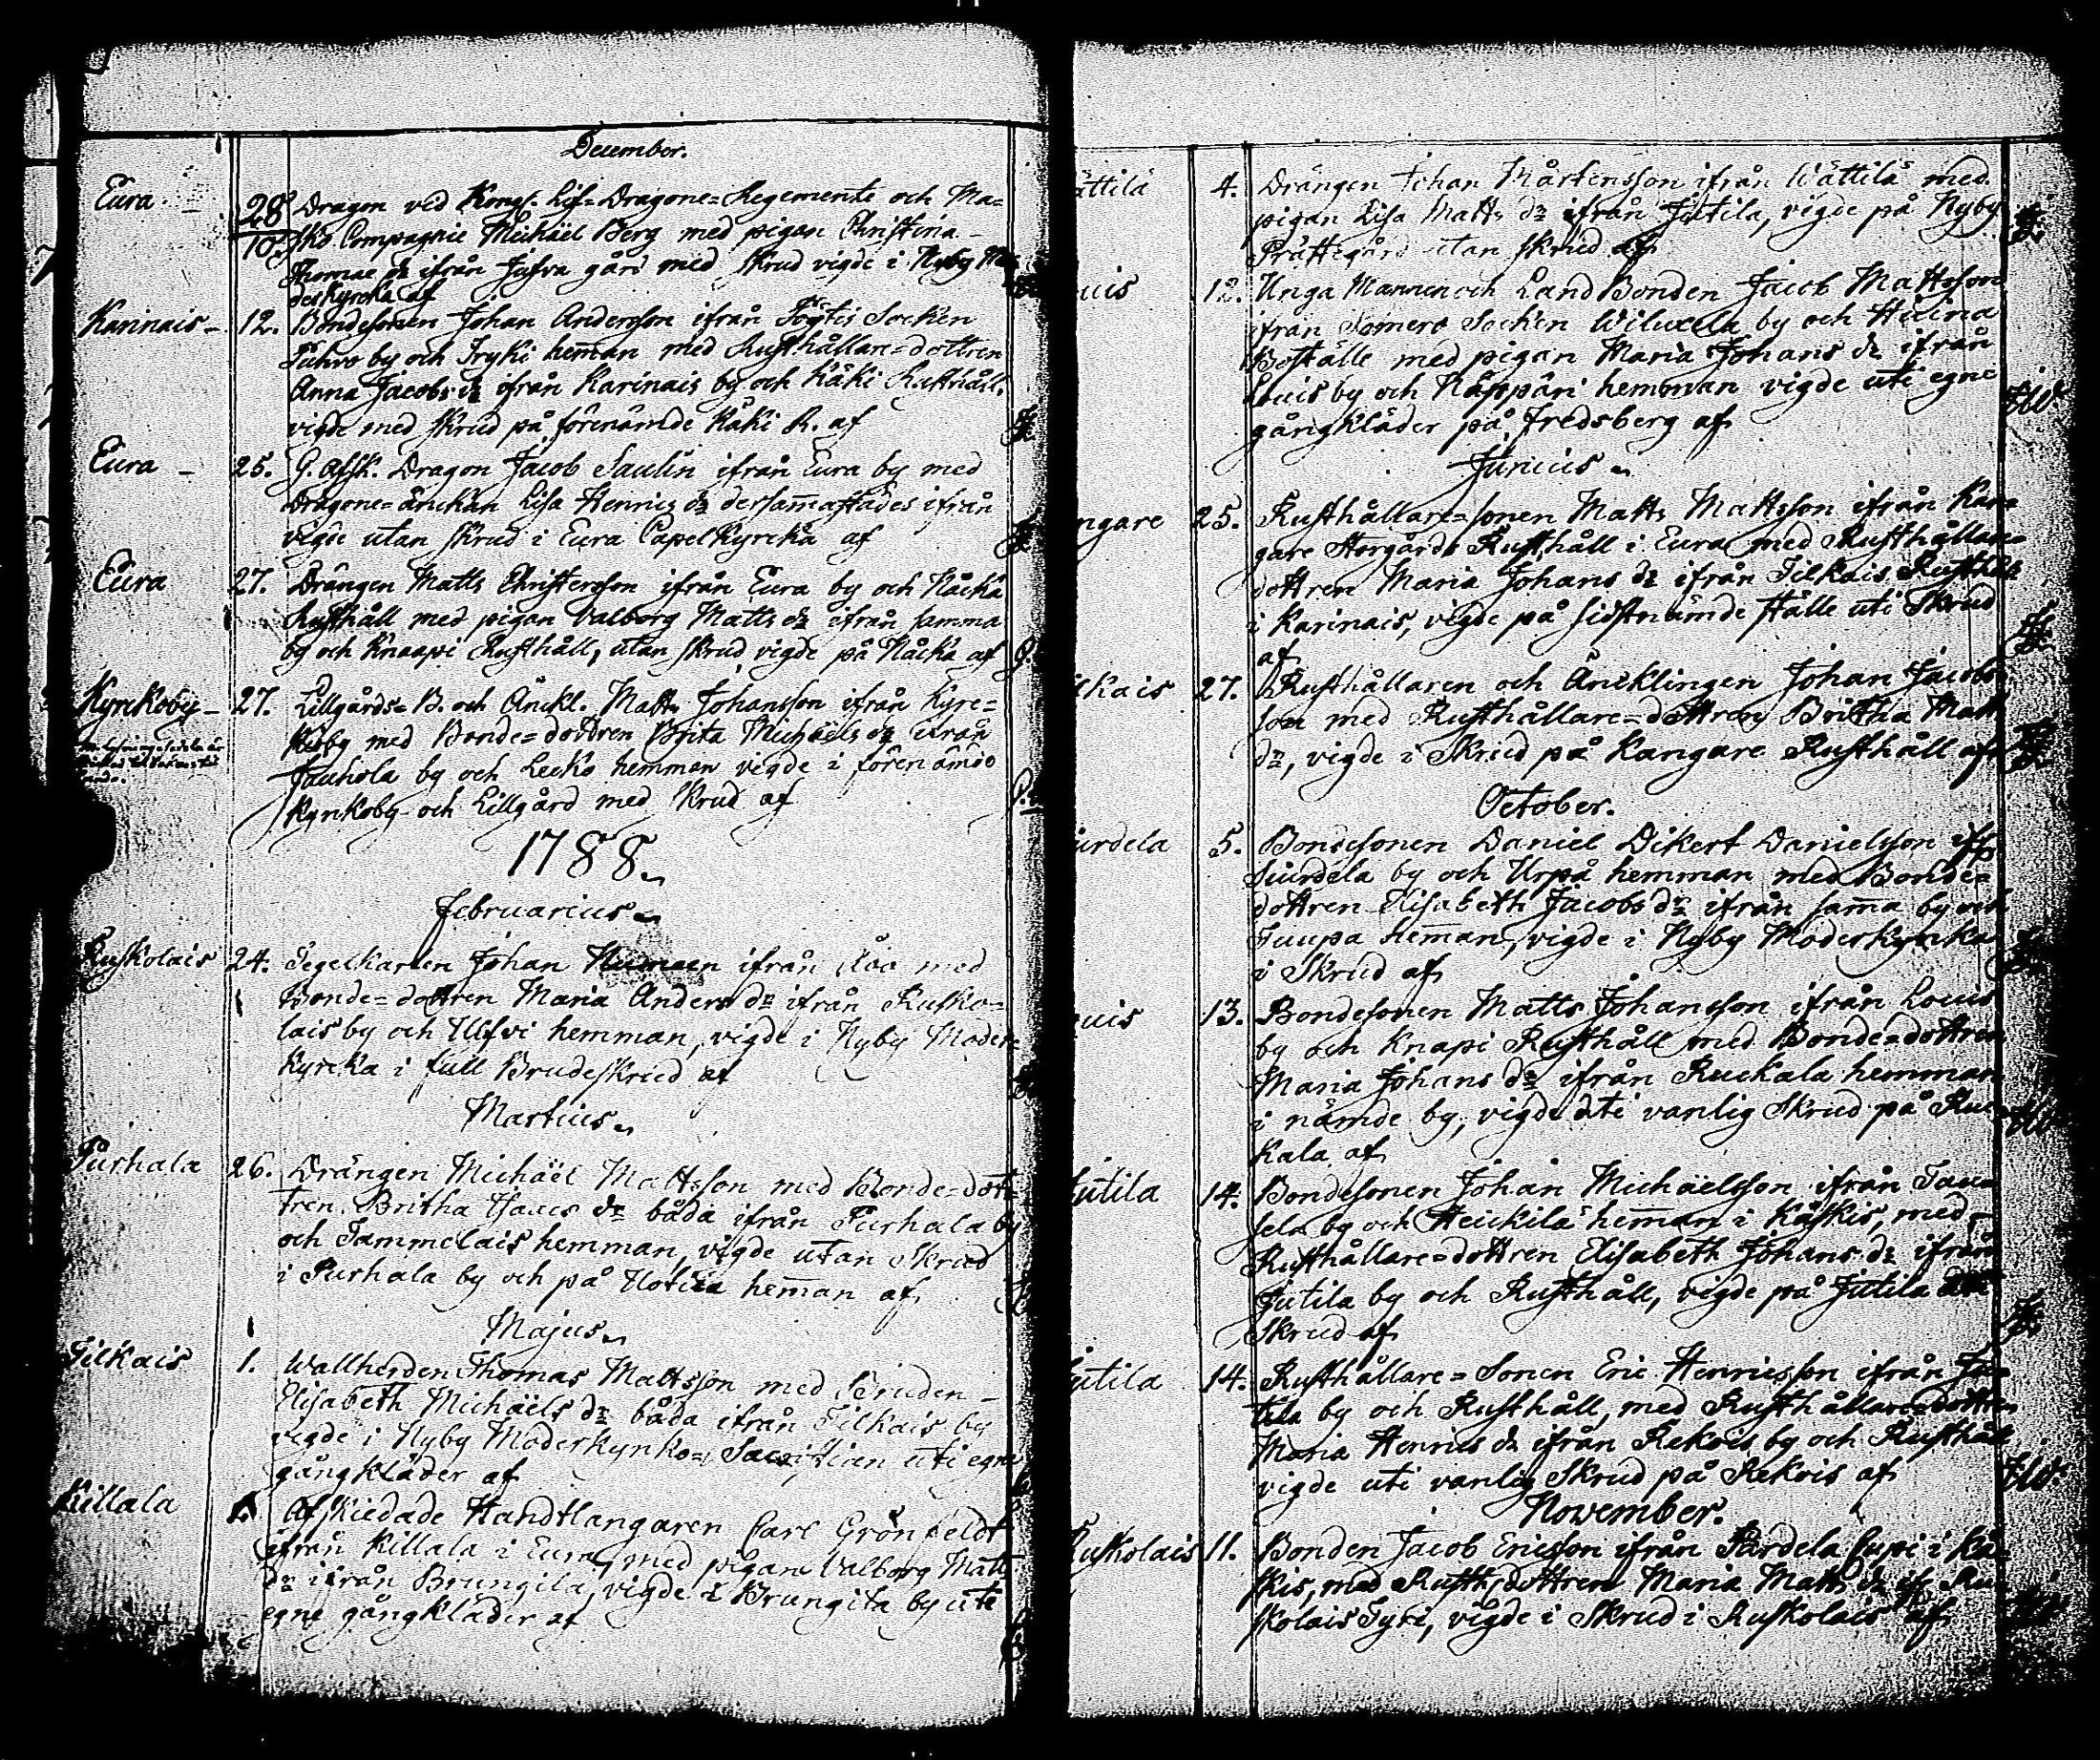 December.
Eura. 28 Dragon vid Kongl. Lif=Dragone=Regemente och Ma=
10. sko Compagnie Michaël Berg med pigan Christina
Thomae dr ifrån Jussva gård med Skrud vigde i Nyby Mo
deskyrcka af
Karinais 12. Bondesonen Johan Andersson ifrån Pöytis Socken
by och Yryki hemman med Rusthållare=dottren
Anna Jacobs dr ifrån Karinais by och Käki Rusthåll,
vigde med Skrud på förenämde Käki R. af
Eura 25. G. Afsk. Dragon Jacob Saulin ifrån Eura by med
Dragone=änckan Lisa Henrics dr dersammastädes ifrån
vigde utan Skrud i Eura CapelKyrcka af
Eura 27. Drängen Matts Christersson ifrån Eura by och Nåcka
Rusthåll med pigan Valborg Matts dr ifrån samma
by och Knaapi Rusthåll, utan skrud vigde på Nåcka af
Kyrckoby 27. Lillgårds=B. och Änckl. Matts Johansson ifrån Kyrc=
koby med Bonde=dottren Brita Michaëls dr ifrån
Jauhola by och Lecko hemman vigde i förenämde
Kyrckoby och Lillgård med Skrud af
1788.
Februarius.
Ruskolais 24. Segelkarlen Johan ifrån Åbo med
Bonde=dottren Maria Anders dr ifrån Rusko=
lais by och Ulfvi hemman, vigde i Nyby Moder=
Kyrcka i full Brudeskrud af
Martius.
Purhala 26. Drängen Michaël Mattsson med Bonde=dot=
tren Britha Isaacs dr båda ifrån Purhala by
och Tammelais hemman, vigde utan Skrud
i Purhala by och på hemman af
Majus.
Tilkais 1. Wallherden Thomas Mattsson med Bruden
Elisabeth Michaëls dr båda ifrån Tilkais by
vigde i Nyby Moderkyrko=Sacristian uti egne
gångkläder af
Killala 1. Afskiedade Handtlangaren Carl Grönfeldt
ifrån Killala i Eura, med pigan Valborg Matts
dr ifrån Brungila, vigde i Brungila by uti
egne gångkläder af
ättilä 4. Drängen Johan Mårtensson ifrån Wättilä med
pigan Lisa Matts dr ifrån Jutila, vigde på Nyby
Prästegård utan skrud af
uis 12. Unga Mannen och LandBonden Jacob Mattsson
ifrån Somero Socken by och
Boställe med pigan Maria Johans dr ifrån
Louis by och Näppäri hemman vigde uti egne
gångkläder på Fredsberg af
Junius.
ngare 25. Rusthållare=sonen Matts Mattsson ifrån Kan=
gare Storgårds Rusthåll i Eura med Rusthållare=
dottren Maria Johans dr ifrån Tilkais Rusthåll
i Karinais, vigde på sidstnämde ställe uti Skrud
af
lkais 27. Rusthållaren och Äncklingen Johan Jacobs
son med Rusthållare=dottren Britha Matts
dr, vigde i Skrud på Kangare Rusthåll af
October.
iurdela 5. Bondesonen Daniel Dikert Danielsson ifr
Siurdela by och Urpå hemman med Bonde=
dottren Elisabeth Jacobs dr ifrån samma by och
Tuupa hemman, vigde i Nyby Moderkyrka
i Skrud af
uis 13. Bondesonen Matts Johansson ifrån Louis
by och Knapi Rusthåll med Bonde=dottren
Maria Johans dr ifrån Ruckala hemman
i nämde by, vigde uti vanlig Skrud på Ruc
kala af
utila 14. Bondesonen Johan Michaëlsson ifrån Tau=
sela by och Heickilä hemman i Kåskis, med
Rusthållare=dottren Elisabeth Johans dr ifrån
Jutila by och Rusthåll, vigde på Jutila uti
Skrud af
utila 14. Rusthållare=Sonen Eric Henricsson ifrån Ju=
tila by och Rusthåll, med Rusthållare=dottren
Maria Henrics dr ifrån Rekois by och Rusthåll
vigde uti vanlig Skrud på Rekois af
November.
Ruskolais 11. Bonden Jacob Ericsson ifrån Pärdela Cupi i Kå=
skis, med Rusth.dottren Maria Matts dr if. Ru=
skolais Tyri, vigde i Skrud i Ruskolais af